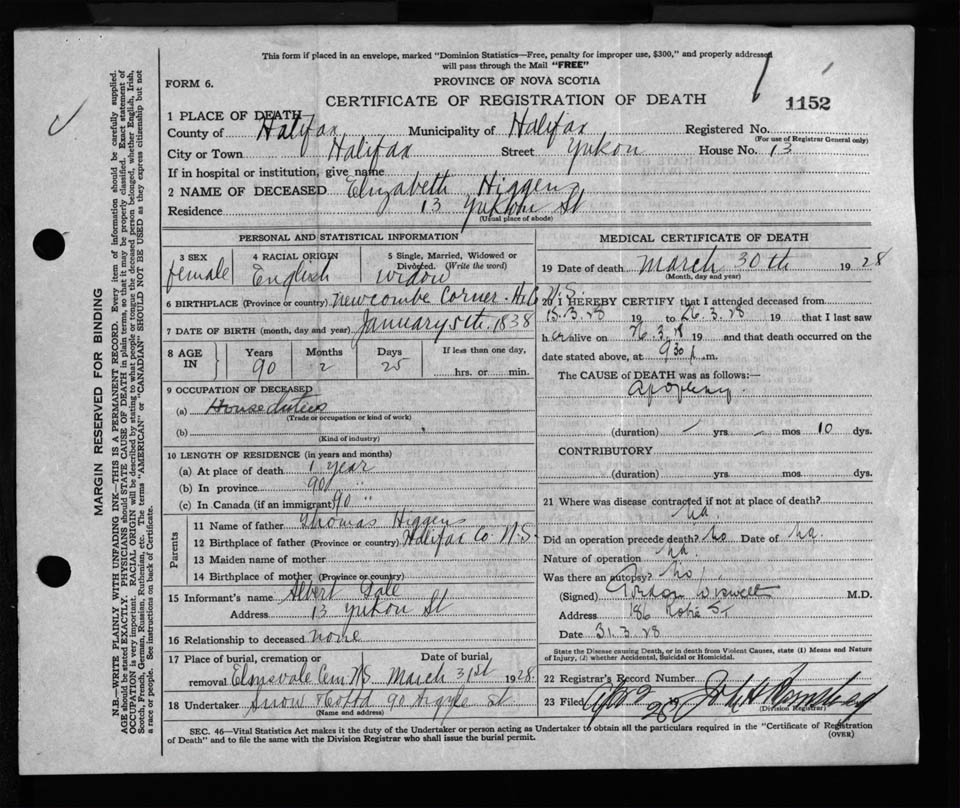 This form if placed in an envelope, marked "Dominion Statistics—Free, penalty for improper use, $300," and properly addressed
will pass through the Mail "FREE"
FORM 6.
PROVINCE OF NOVA SCOTIA
CERTIFICATE OF REGISTRATION OF DEATH
1152
1 PLACE OF DEATH
County of Halifax Municipality of Halifax Registered No.
(For use of Registrar General only)
City or Town Halifax Street Yukon House No. 13
If in hospital or institution, give name
2 NAME OF DECEASED Elizabeth Higgens
Residence 13 Yukon St
(Usual place of abode)
PERSONAL AND STATISTICAL INFORMATION
3 SEX 4 RACIAL ORIGIN 5 Single, Married, Widowed or
Divorced. (Write the word)
female English widow
6 BIRTHPLACE (Province or country) Newcombe Corner. H.C N.S.
7 DATE OF BIRTH (month, day and year) January 5th. 1838
8 AGE IN Years Months Days If less than one day,
90 2 25 hrs. or min.
9 OCCUPATION OF DECEASED
(a) House duties
(Trade or occupation or kind of work)
(b)
(Kind of industry)
10 LENGTH OF RESIDENCE (in years and months)
(a) At place of death 1 year
(b) In province 90 "
(c) In Canada (if an immigrant) 90 "
Parents
11 Name of father Thomas Higgens
12 Birthplace of father (Province or country) Halifax Co. N.S.
13 Maiden name of mother
14 Birthplace of mother (Province or country)
15 Informant's name Albert
Address 13 Yukon St
16 Relationship to deceased none
17 Place of burial, cremation or Date of burial,
removal Elmsvale Cem N.S. March 31st 1928
18 Undertaker Snow 90 Argyle St
(Name and address)
MEDICAL CERTIFICATE OF DEATH
19 Date of death March 30th 1928
(Month, day and year)
20 I HEREBY CERTIFY that I attended deceased from
15.3.28 19 to 26.3.28 19 that I last saw
h er alive on 26.3.28 19 and that death occurred on the
date stated above, at 9 30 p.m.
The CAUSE of DEATH was as follows:—
apoplexy.
(duration) yrs mos 10 dys.
CONTRIBUTORY
(duration) yrs mos dys.
21 Where was disease contracted if not at place of death?
na.
Did an operation precede death? No Date of na.
Nature of operation na.
Was there an autopsy? No
(Signed) Gordon Wiswell M.D.
Address 186 St
Date 31.3.28
State the Disease causing Death, or in death from Violent Causes, state (1) Means and Nature
of Injury, (2) whether Accidental, Suicidal or Homicidal.
22 Registrar's Record Number
23 Filed Apr 2 28 John A
(Division Registrar)
SEC. 46—Vital Statistics Act makes it the duty of the Undertaker or person acting as Undertaker to obtain all the particulars required in the "Certificate of Registration
of Death" and to file the same with the Division Registrar who shall issue the burial permit.
(OVER)
MARGIN RESERVED FOR BINDING
N.B.—WRITE PLAINLY WITH UNFADING INK—THIS IS A PERMANENT RECORD. Every item of information should be carefully supplied.
AGE should be stated EXACTLY. PHYSICIANS should STATE CAUSE OF DEATH in plain terms, so that it may be properly classified. Exact statement of
OCCUPATION is very important. RACIAL ORIGIN will be described by stating to what people or tongue the deceased person belonged, whether English, Irish,
Scotch, French, German, Russian, Ruthenian, etc. The terms "AMERICAN" or "CANADIAN" SHOULD NOT BE USED as they express citizenship but not
a race or people. See instructions on back of Certificate.